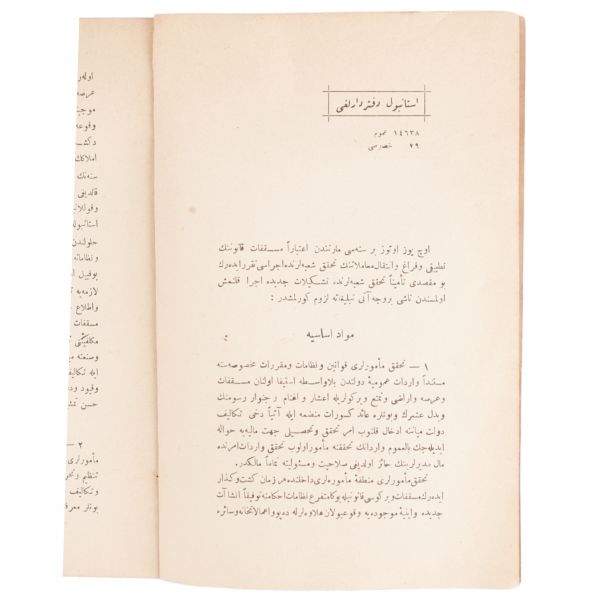 استانبول دفتردارلغی
١٤٦٣٨ عموم
٢٩ خصوصی
اوچ یوز اوتوز بر سنه‌سی مارتندن اعتباراً مسقفات قانوننك
تطبیقی و فراغ و انتقال معاملاتنك تحقق شعبه‌لرنده اجراسی تقرر ایده‌رك
بو مقصدی تأمیناً تحقق شعبه‌لرنده تشكیلات جدیده اجرا قلنمش
اولمسندن ناشی بروجه آتی تبلیغاته لزوم كورلمشدر :
مواد اساسیه
١ — تحقق مأمورلری قوانین و نظامات و مقررات مخصوصه‌سنه
مستنداً واردات عمومیهٔ دولتدن بلاواسطه استیفا اولنان مسقفات
و عرصه و اراضی و تمتع ویركولریله اعشار و اغنام و جنوار رسومنك
و بدل عشرك و بونلره عائد كسورات منضمه ایله آتیاً دخی تكالیف
دولت میاننه ادخال قلنوب امر تحقق و تحصیلی جهت مالیه‌یه حواله
ایدیله‌جك بالعموم وارداتك تحققنه مأمور اولوب تحقق واردات امرنده
مال مدیرلرینك حائز اولدیغی صلاحیت و مسئولیته تماماً مالكدر.
تحقق مأمورلری منطقهٔ مأموریتلری داخلنده هر زمان كشت وكذار
ایده‌رك مسقفات ویركوسی قانونیله بوكا متفرع نظامات احكامنه توفیقاً انشاآت
جدیده و ابنیهٔ موجوده‌یه وقوعبولان علاوه‌لرله ده‌پو و اعمالاتخانه وسائره
اوله‌ر
عرصه
موجب
وقوعه
دكشـ
املاكك
سنه‌نك
قالدیغی
وقوعالا
استانبول
حلولندن
و نظاماته
بوقبیل
لازمه‌یه
و اطلاع
مسقفات
مكلفیتی
وصنعته
ایله تكالیف
وقیود و
حسن تمشـ
٢ —
مأمورلری
تنظیم و تحر
و تكالیف
بونلر معرفـ